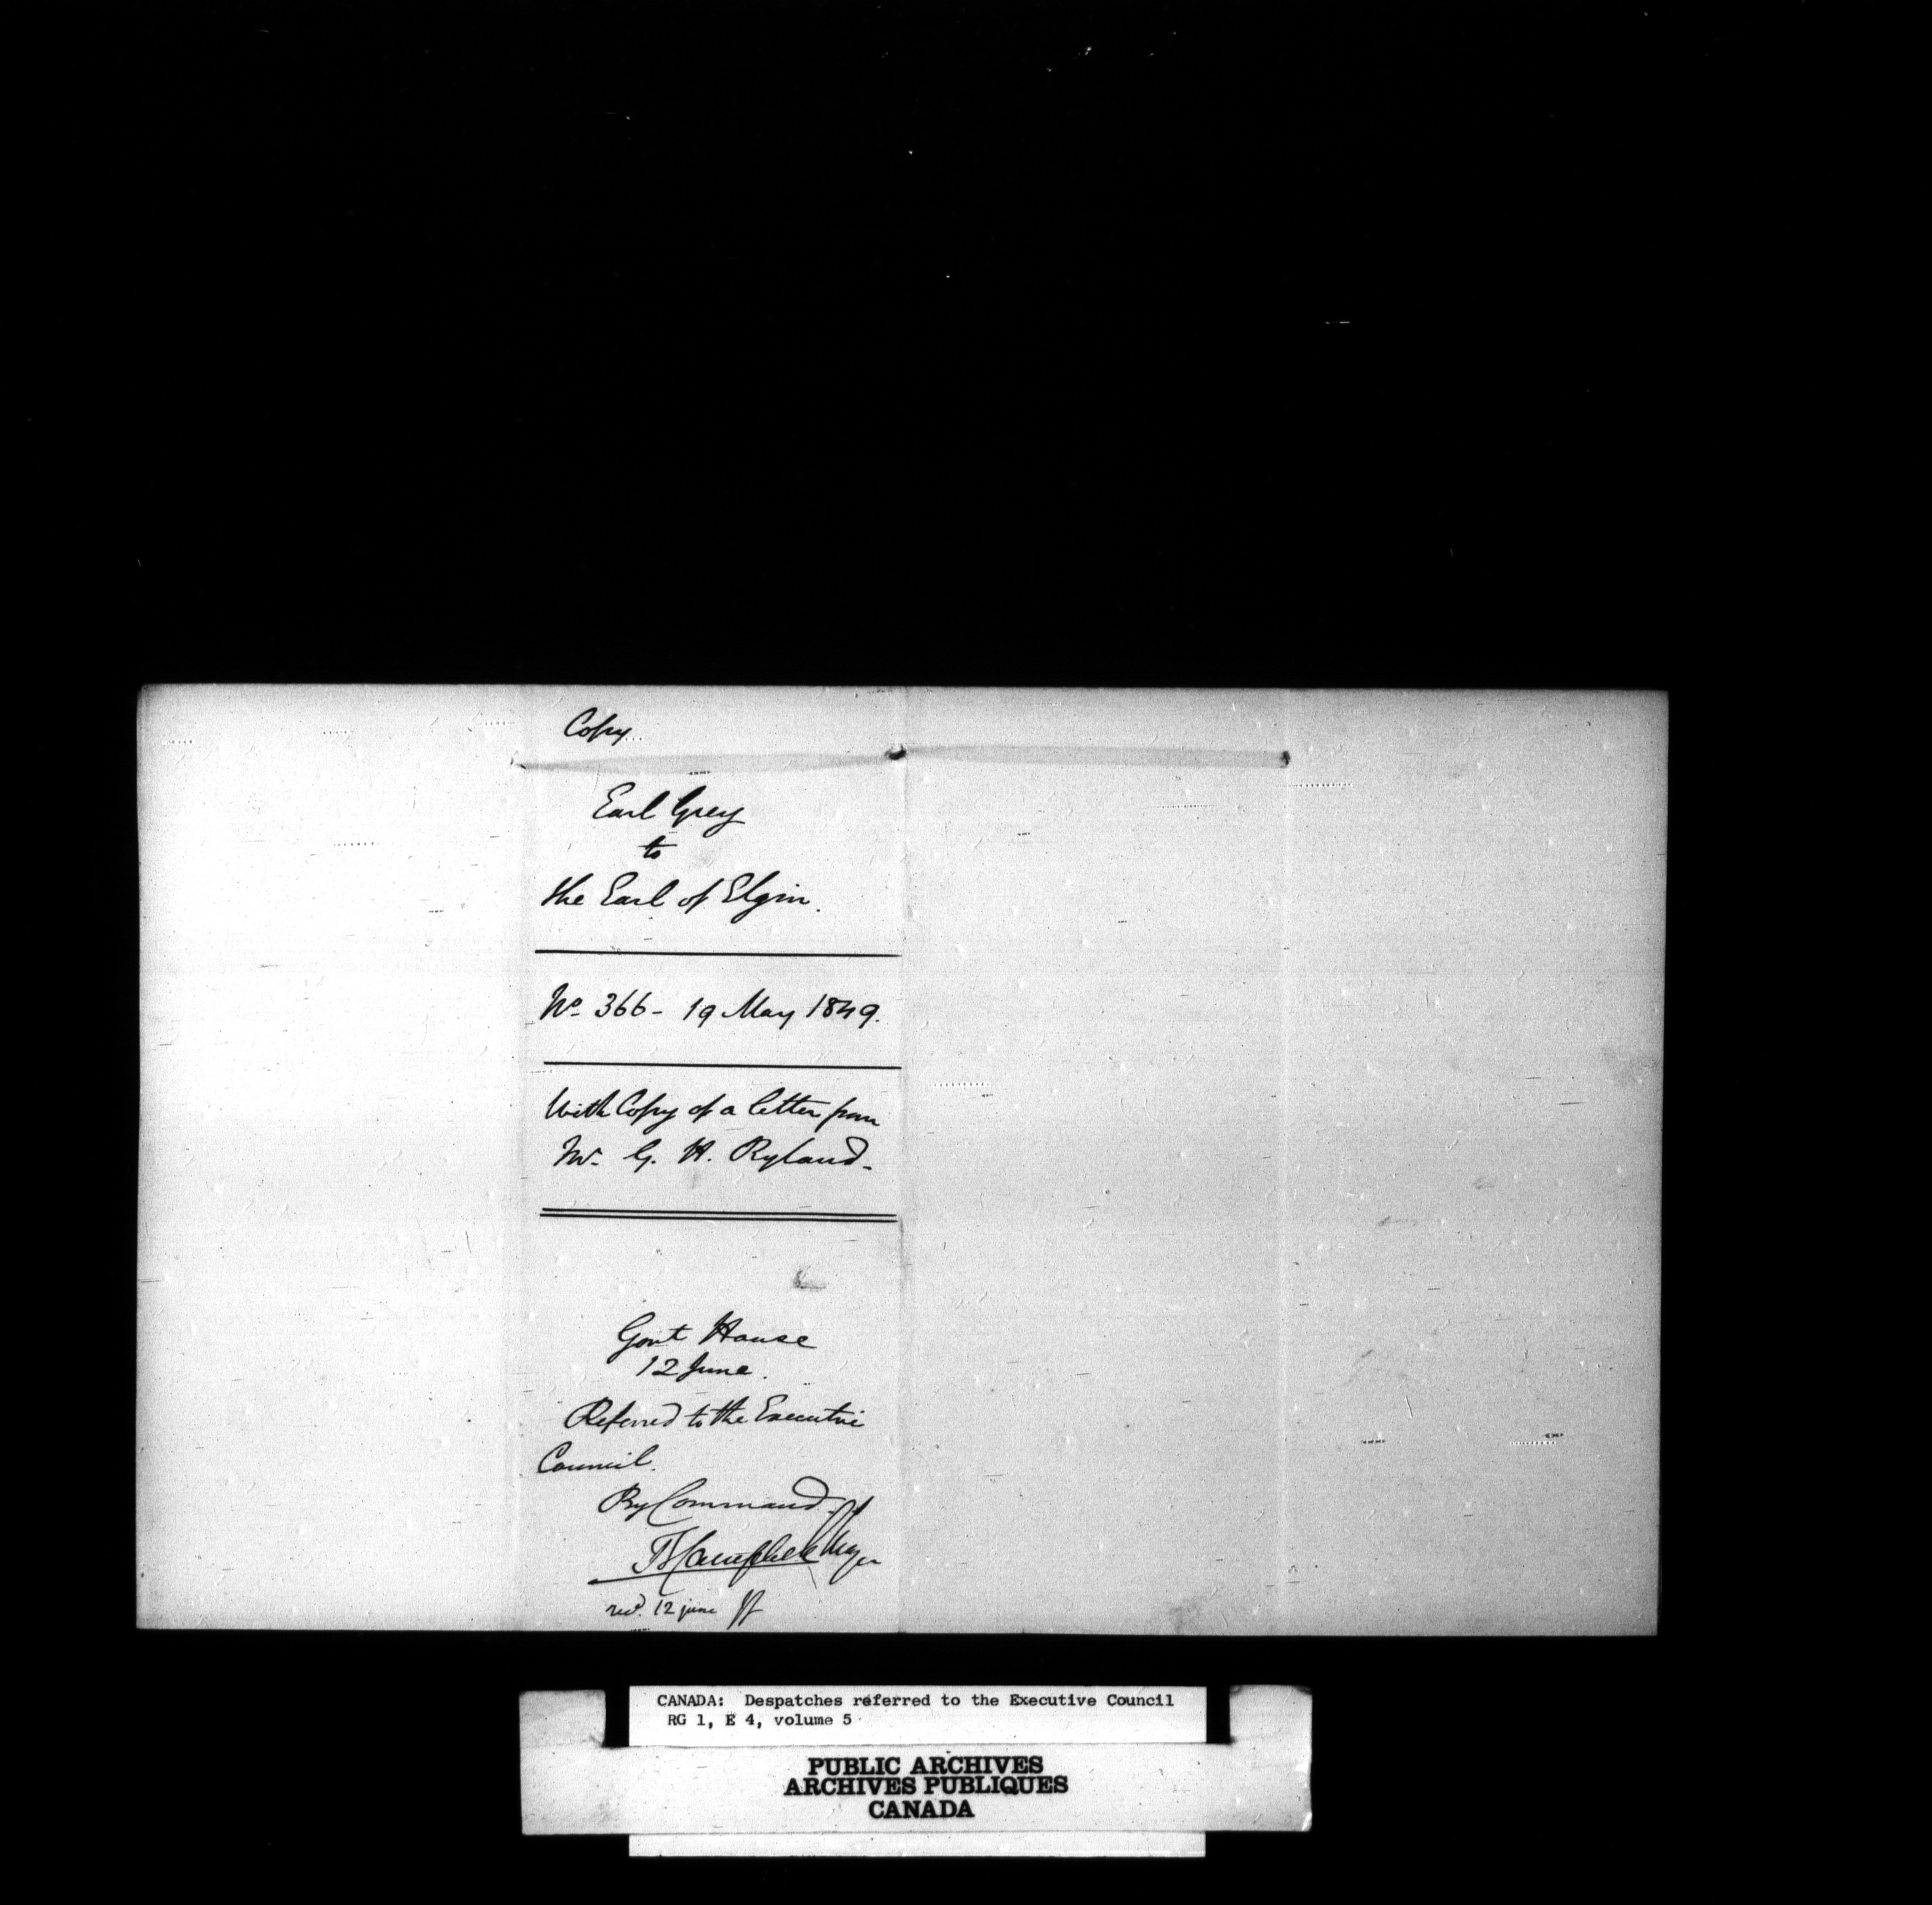 Copy
Earl Grey
to
the Earl of Elgin.
No. 366 - 19 May 1849.
With Copy of a letter from
Mr. G. H. Ryland -
Govt House
12 June.
Referred to the Executive
Council.
By Command.
T Campbell Major
recd. 12 june
CANADA: Despatches referred to the Executive Council
RG 1, E 4, volume 5
PUBLIC ARCHIVES
ARCHIVES PUBLIQUES
CANADA